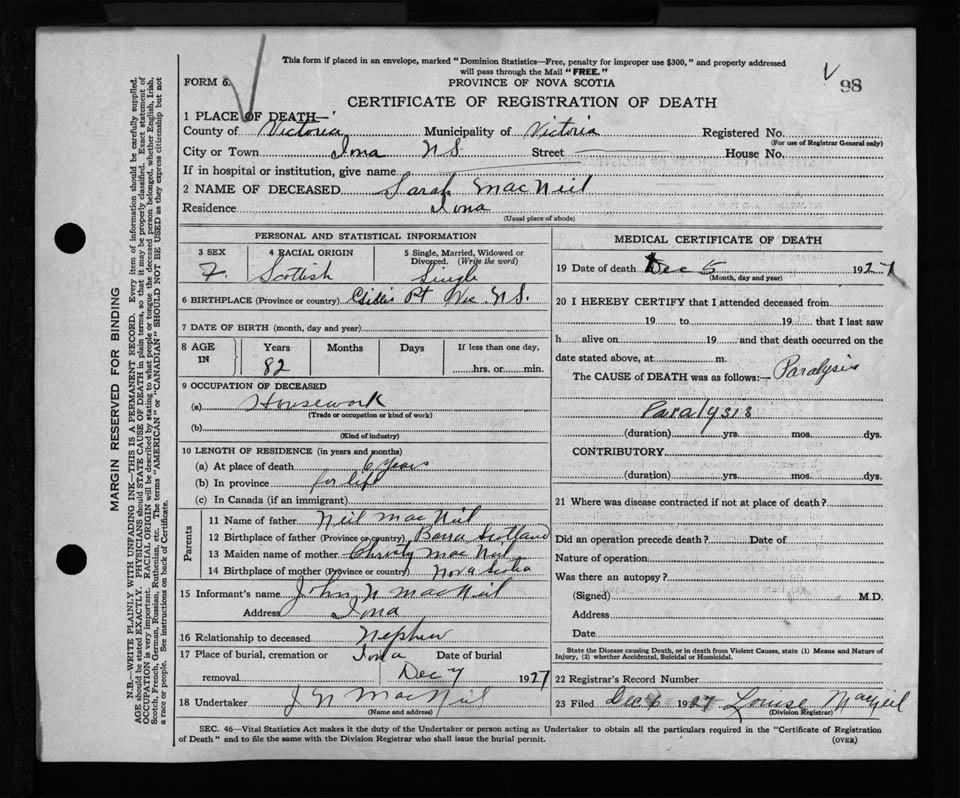 This form if placed in an envelope, marked "Dominion Statistics—Free, penalty for improper use $300," and properly addressed
will pass through the Mail "FREE."
FORM 6.
PROVINCE OF NOVA SCOTIA
98
CERTIFICATE OF REGISTRATION OF DEATH
1 PLACE OF DEATH—
County of Victoria Municipality of Victoria Registered No.
(For use of Registrar General only)
City or Town Iona N.S. Street House No.
If in hospital or institution, give name
2 NAME OF DECEASED Sarah MacNeil
Residence Iona
(Usual place of abode)
PERSONAL AND STATISTICAL INFORMATION
3 SEX 4 RACIAL ORIGIN 5 Single, Married, Widowed or Divorced. (Write the word)
F. Scottish Single
6 BIRTHPLACE (Province or country) Gillis Pt Vic. N.S.
7 DATE OF BIRTH (month, day and year)
8 AGE IN Years Months Days If less than one day,
82 hrs. or min.
9 OCCUPATION OF DECEASED
(a) Housework
(Trade or occupation or kind of work)
(b)
(Kind of industry)
10 LENGTH OF RESIDENCE (in years and months)
(a) At place of death 6 Years
(b) In province for life
(c) In Canada (if an immigrant)
Parents
11 Name of father Neil MacNeil
12 Birthplace of father (Province or country) Barra Scotland
13 Maiden name of mother Christy MacNeil
14 Birthplace of mother (Province or country) Nova Scotia
15 Informant's name John N MacNeil
Address Iona
16 Relationship to deceased Nephew
17 Place of burial, cremation or Iona Date of burial
removal Dec 7 1927
18 Undertaker J N MacNeil
(Name and address)
MEDICAL CERTIFICATE OF DEATH
19 Date of death Dec 5 1927
(Month, day and year)
20 I HEREBY CERTIFY that I attended deceased from
19 to 19 that I last saw
h alive on 19 and that death occurred on the
date stated above, at m.
The CAUSE of DEATH was as follows:— Paralysis
Paralysis
(duration) yrs. mos. dys.
CONTRIBUTORY
(duration) yrs. mos. dys.
21 Where was disease contracted if not at place of death?
Did an operation precede death? Date of
Nature of operation
Was there an autopsy?
(Signed) M.D.
Address
Date
State the Disease causing Death, or in death from Violent Causes, state (1) Means and Nature of
Injury, (2) whether Accidental, Suicidal or Homicidal.
22 Registrar's Record Number
23 Filed Dec 6 1927 Louise MacNeil
(Division Registrar)
SEC. 46—Vital Statistics Act makes it the duty of the Undertaker or person acting as Undertaker to obtain all the particulars required in the "Certificate of Registration
of Death" and to file the same with the Division Registrar who shall issue the burial permit. (OVER)
MARGIN RESERVED FOR BINDING
N.B.—WRITE PLAINLY WITH UNFADING INK—THIS IS A PERMANENT RECORD. Every item of information should be carefully supplied.
AGE should be stated EXACTLY. PHYSICIANS should STATE CAUSE OF DEATH in plain terms, so that it may be properly classified. Exact statement of
OCCUPATION is very important. RACIAL ORIGIN will be described by stating to what people or tongue the deceased person belonged, whether English, Irish,
Scotch, French, German, Russian, Ruthenian, etc. The terms "AMERICAN" or "CANADIAN" SHOULD NOT BE USED as they express citizenship but not
a race or people. See instructions on back of Certificate.